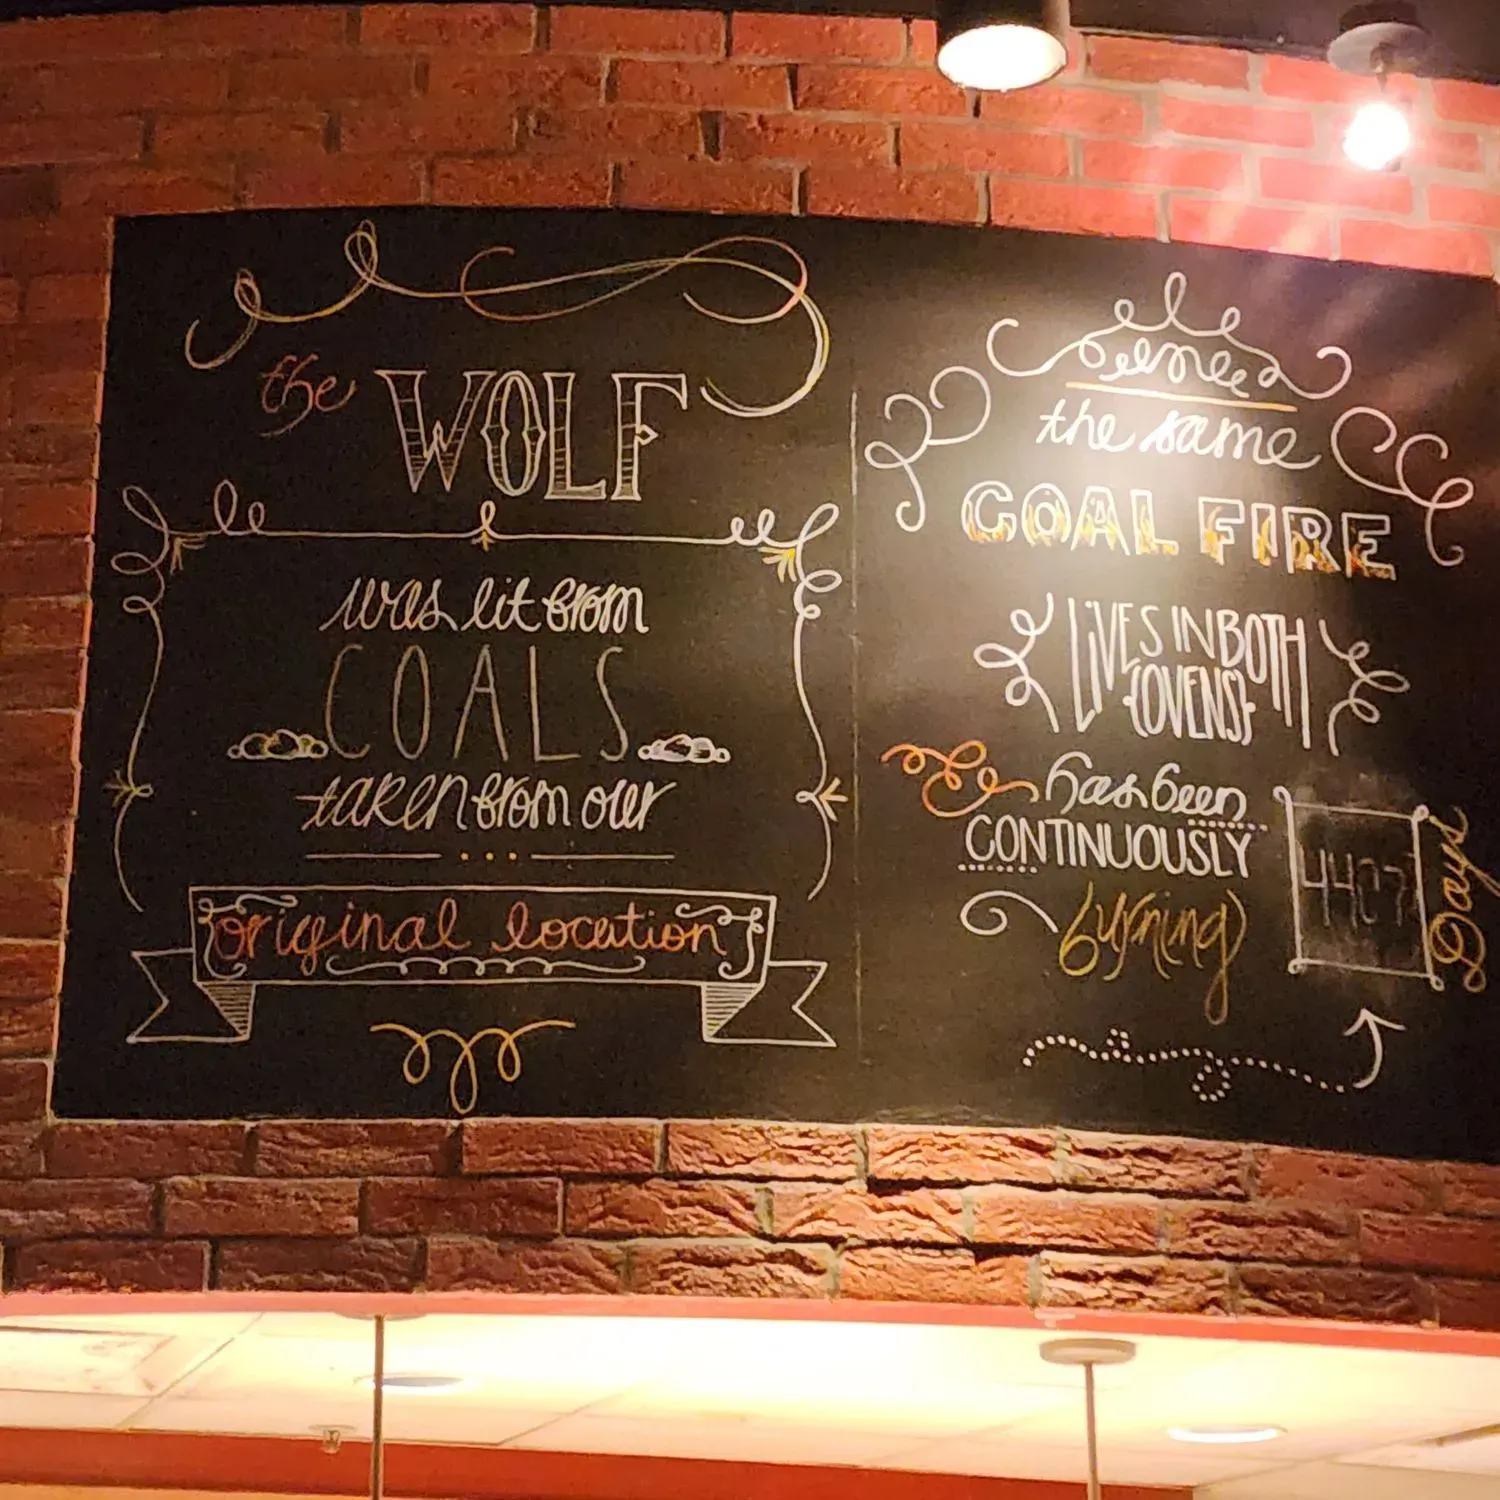 the WOLF
was lit from
COALS
taken from our
original location
the same
COAL FIRE
LIVES IN BOTH
{OVENS}
has been
CONTINUOUSLY
burning
4407
Days